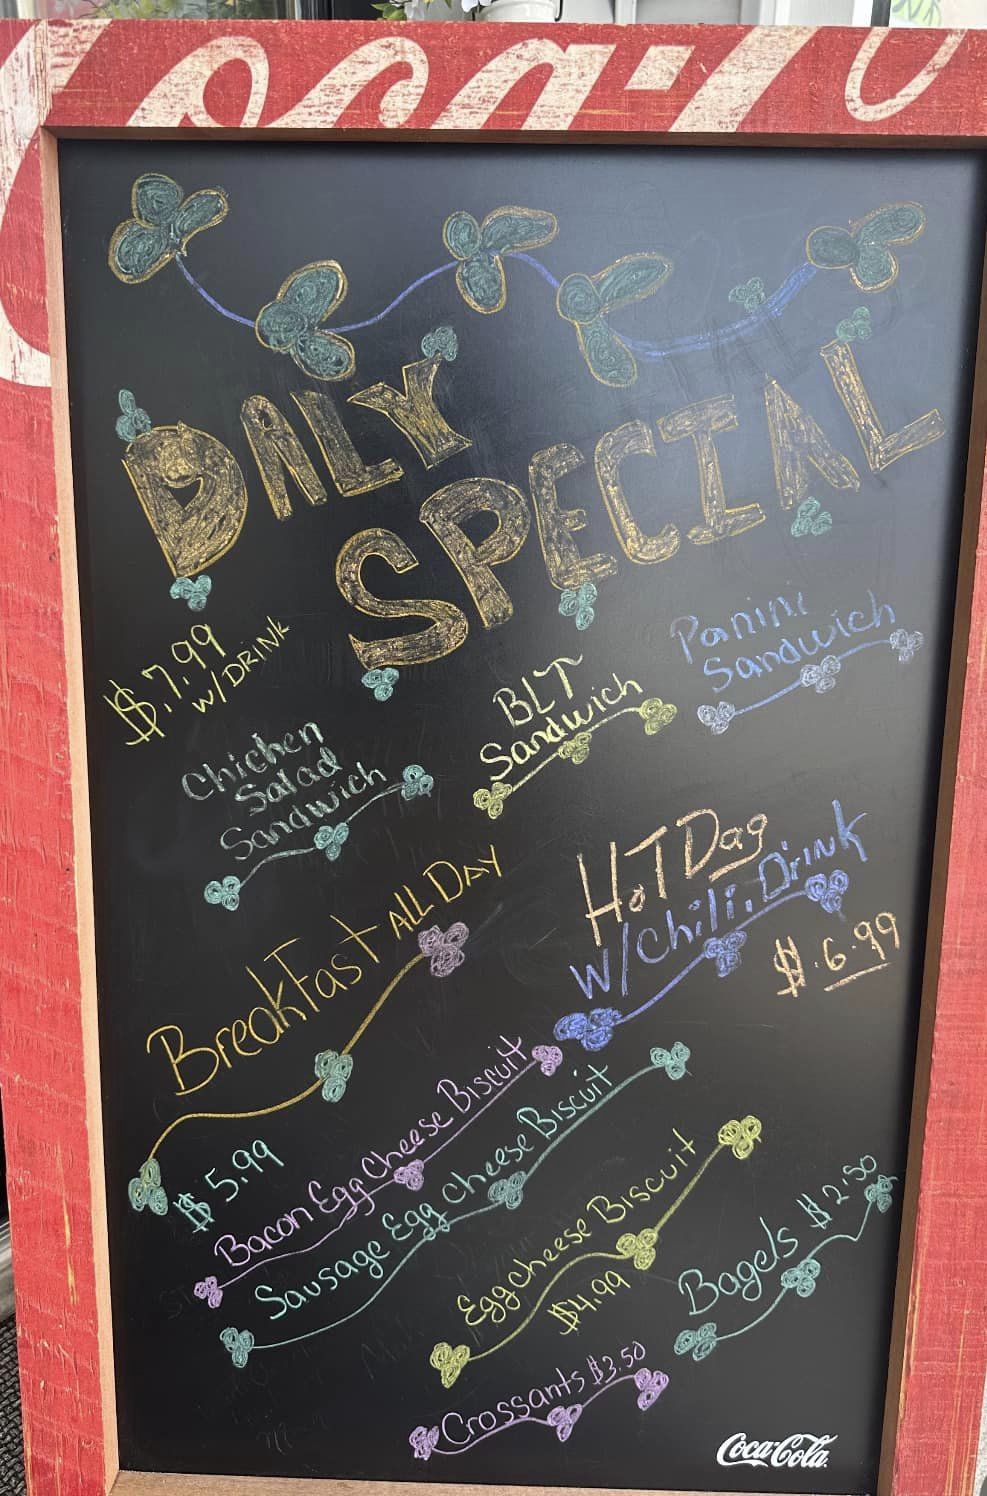 Coca-Co
DALY
SPECIAL
$.7.99
W/DRINK
Panini
Sandwich
BLT
Sandwich
Chichen
Salad
Sandwich
HoT Dag
W/chili.Drink
$.6.99
BreakFast ALL DAY
$5.99
Bacon Egg Cheese Biscuit
Sausage Egg cheese Biscuit
Egg cheese Biscuit
$4.99
Bagels $2.50
Crossants $3.50
Coca-Cola